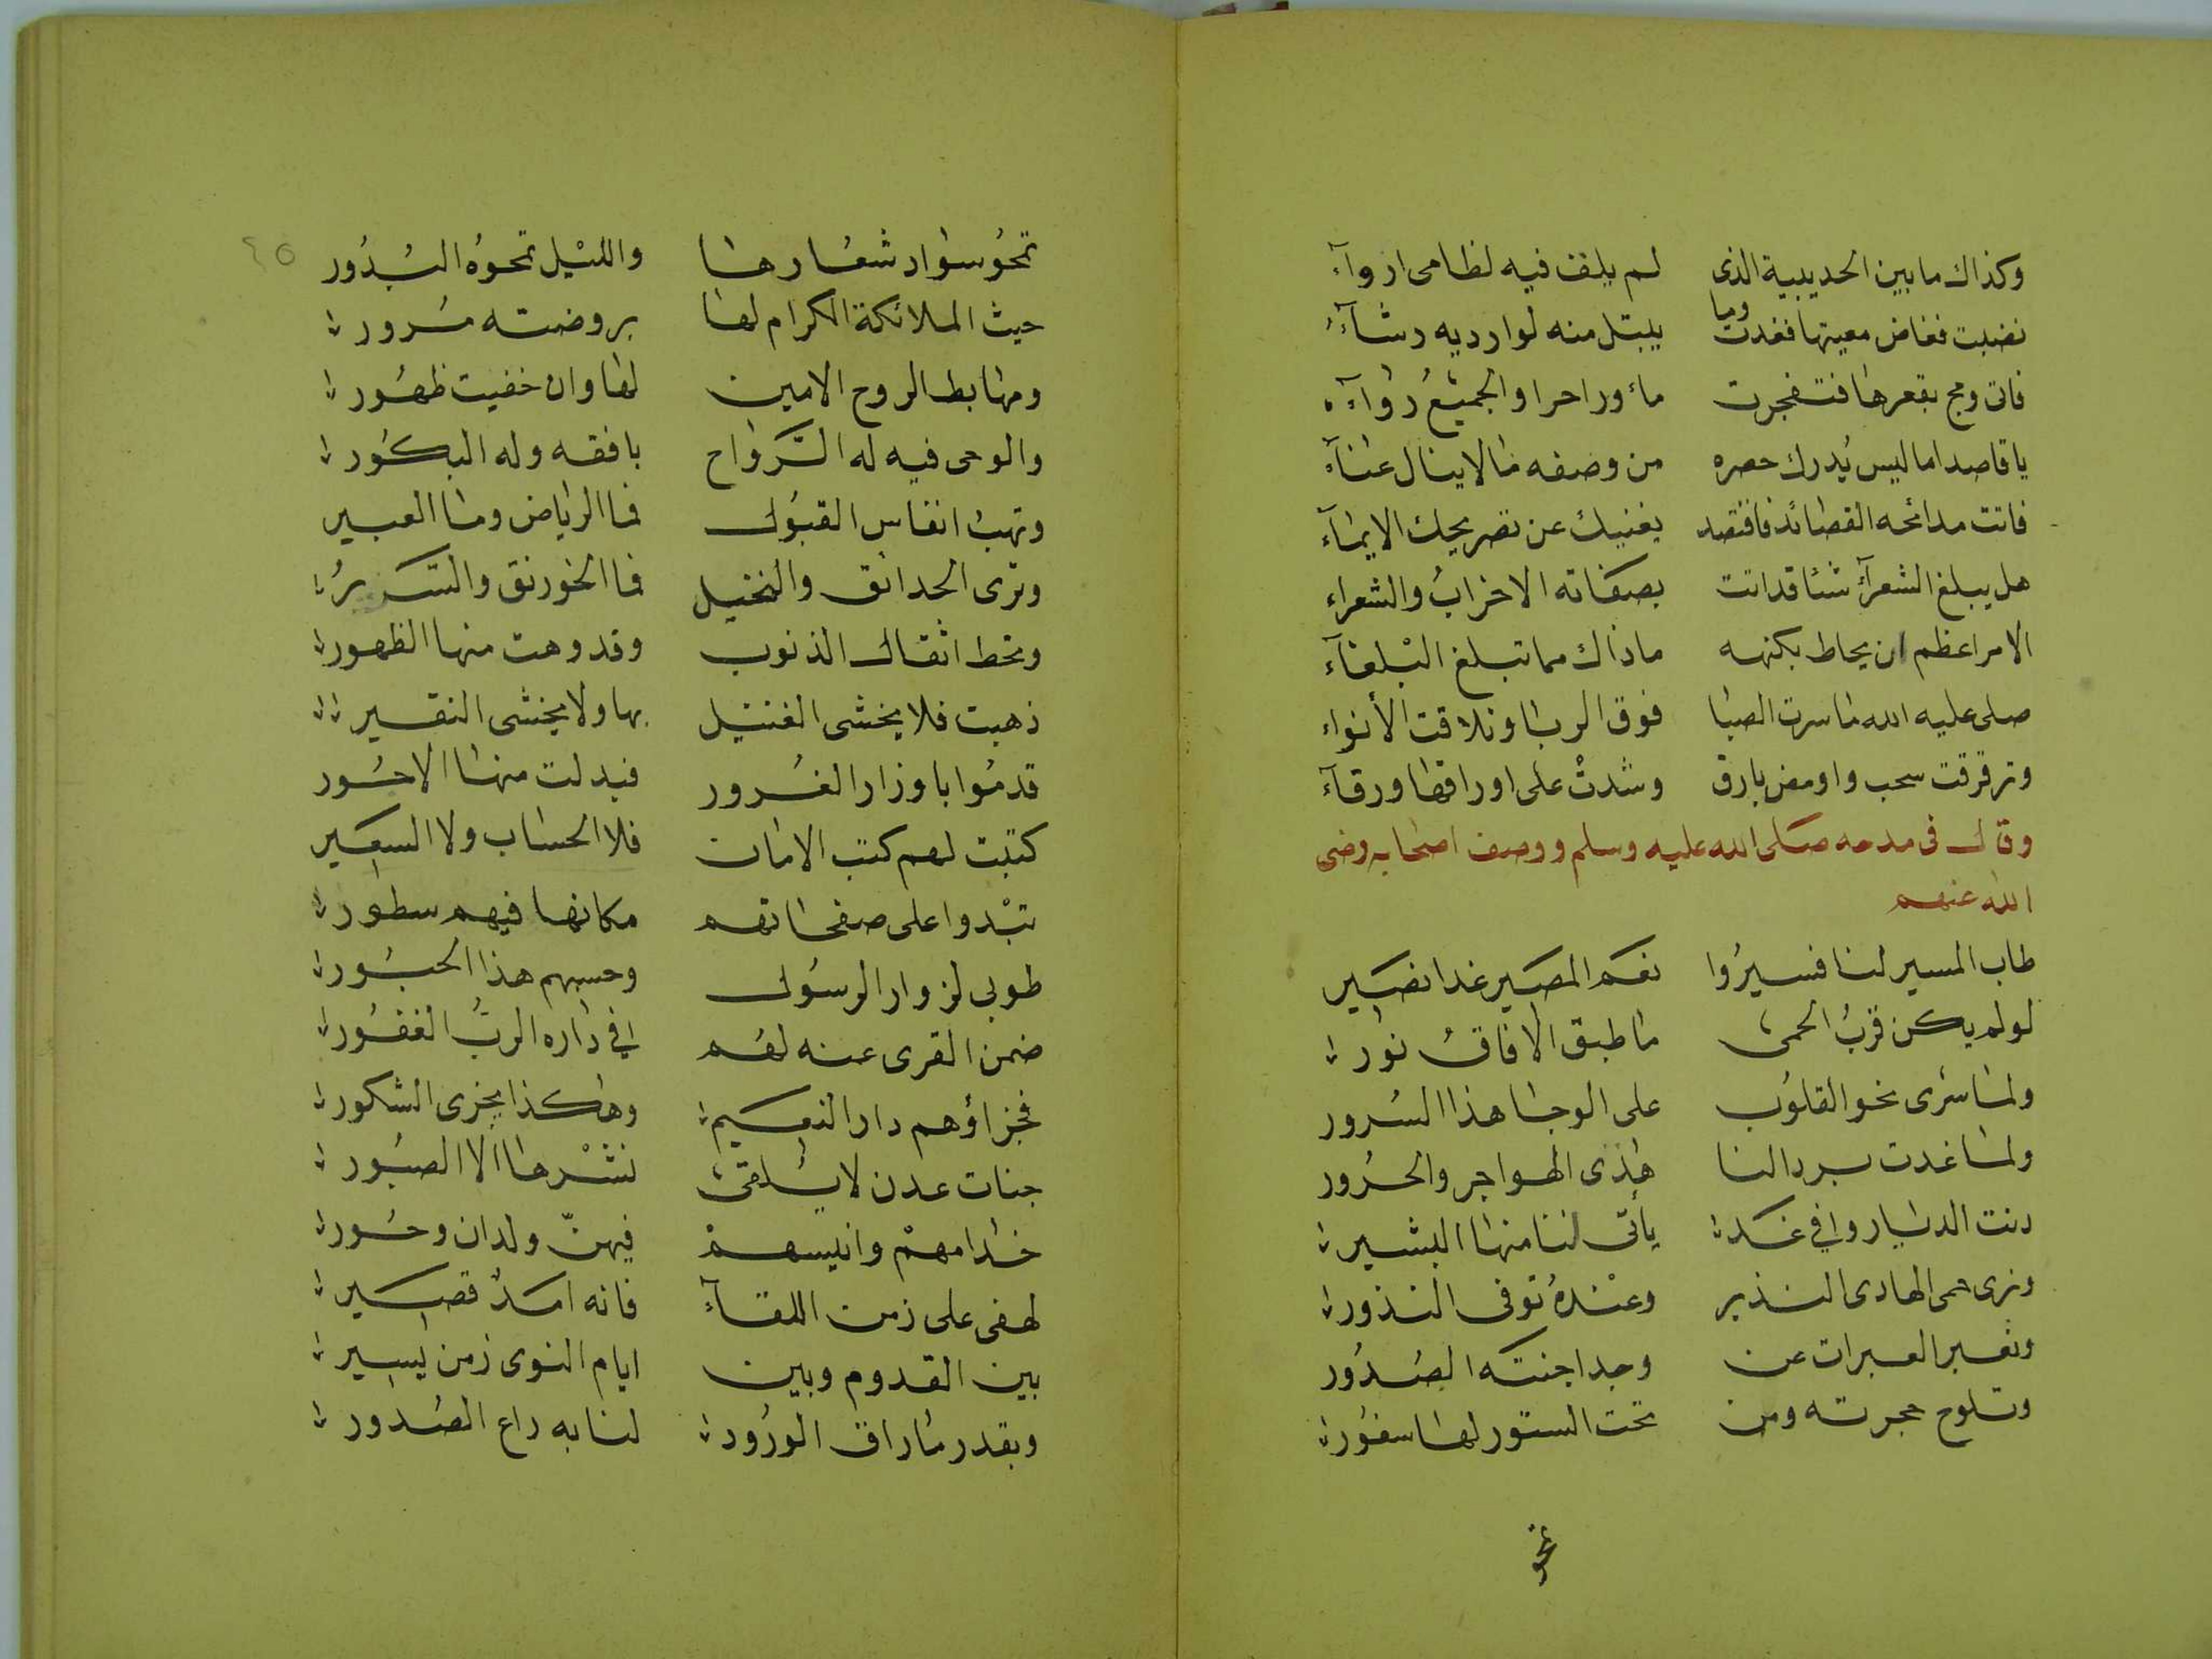 وكذاك ما بين الحديبية الذى لم يلف فيه لظامى ارواآء
نضبت فغاض معينها فغدت وما يبتل منه لوارديه رشآءُ
فاتى ومج بقعرها فتفجرت مآء وراحوا والجميعُ رُوآءُ
يا قاصدا ما ليس يُدرك حصره من وصفه ما لا ينال عنآء
فاتت مدائحه القصائد فاقتصد يغنيك عن تصريحك الايمآء
هل يبلغ الشعرآءُ شئا قد اتت بصفاته الاحزابُ والشعراء
الامر اعظم ان يحاط بكنهه ما ذاك مما تبلغ البُلغآء
صلى عليه الله ما سرت الصبا فوق الربا وتلاقت الأنواء
وترقرقت سحب واومض بارق وشدتْ على اوراقها ورقآء
وقال فى مدحه صلى الله عليه وسلم ووصف اصحابه رضى
الله عنهم
طاب المسير لنا فسيرُوا نعم المصير غدا نصير
لو لم يكن قربُ الحمى ما طبق الافاق نور
ولما سَرى نحو القلوب على الوجا هذا السُرور
ولما غدت بردا لنا هذى الهواجر والحرُور
دنت الديار وفي غد يأتى لنا منها البشير
ونرى حمى الهادى النذير وعنْدهُ توفى النذور
ونعبر العبرات عن وجد اجنته الصُدُور
وتلوح حجرته ومن تحت الستور لها سفُور
تمحُو
تمحُو سواد شعارها والليْل تمحوهُ البُدُور
حيث الملائكة الكرام لها بروضته مُرور
ومهابط الروح الامين لها وان خفيت ظهُور
والوحى فيه له الرَّواح بافقه وله البكُور
وتهبُ انفاس القبُول فما الرياض وما العبير
وترى الحدائق والنخيل فما الخورنق والسَّديرُ
وتحط اثقال الذنوب وقد وهت منها الظهور
ذهبت فلا يخشى الفتيل بها ولا يخشى النقير
قدمُوا باوزار الغُرور فبدلت منها الاجُور
كتبت لهم كتب الامان فلا الحساب ولا السعير
تبْدوا على صفحاتهم مكانها فيهم سطور
طوبى لزوار الرسُول وحسبهم هذا الحبُور
ضمن القرى عنه لهُم في داره الربُّ الغفُور
فجزاؤهم دار النعيم وهكذا يجزى الشكور
جنات عدن لا يُلقى نشْرها الا الصبُور
خدامهمْ وانيسهمْ فيهنّ ولدان وحُور
لهفى على زمن اللقآءِ فانه امَدٌ قصير
بين القدوم وبين ايام النوى زمن يسير
وبقدر ما راق الورُود لنا به راع الصُدور
٤٥